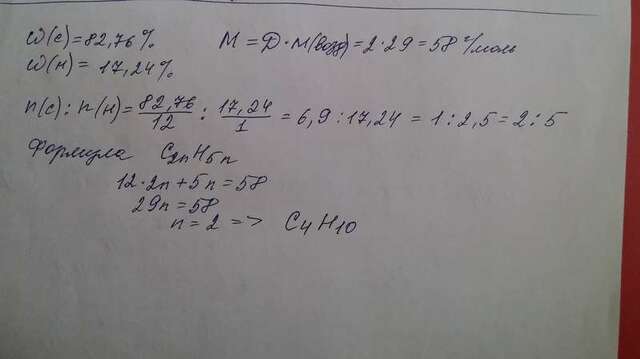 ω(C)=82,76% M = D·M(возд)=2·29=58 г/моль
ω(H)= 17,24%
n(C):n(H)= 82,76/12 : 17,24/1 = 6,9:17,24 = 1:2,5=2:5
Формула C2nH5n
12·2n+5n=58
29n=58
n=2 => C4H10